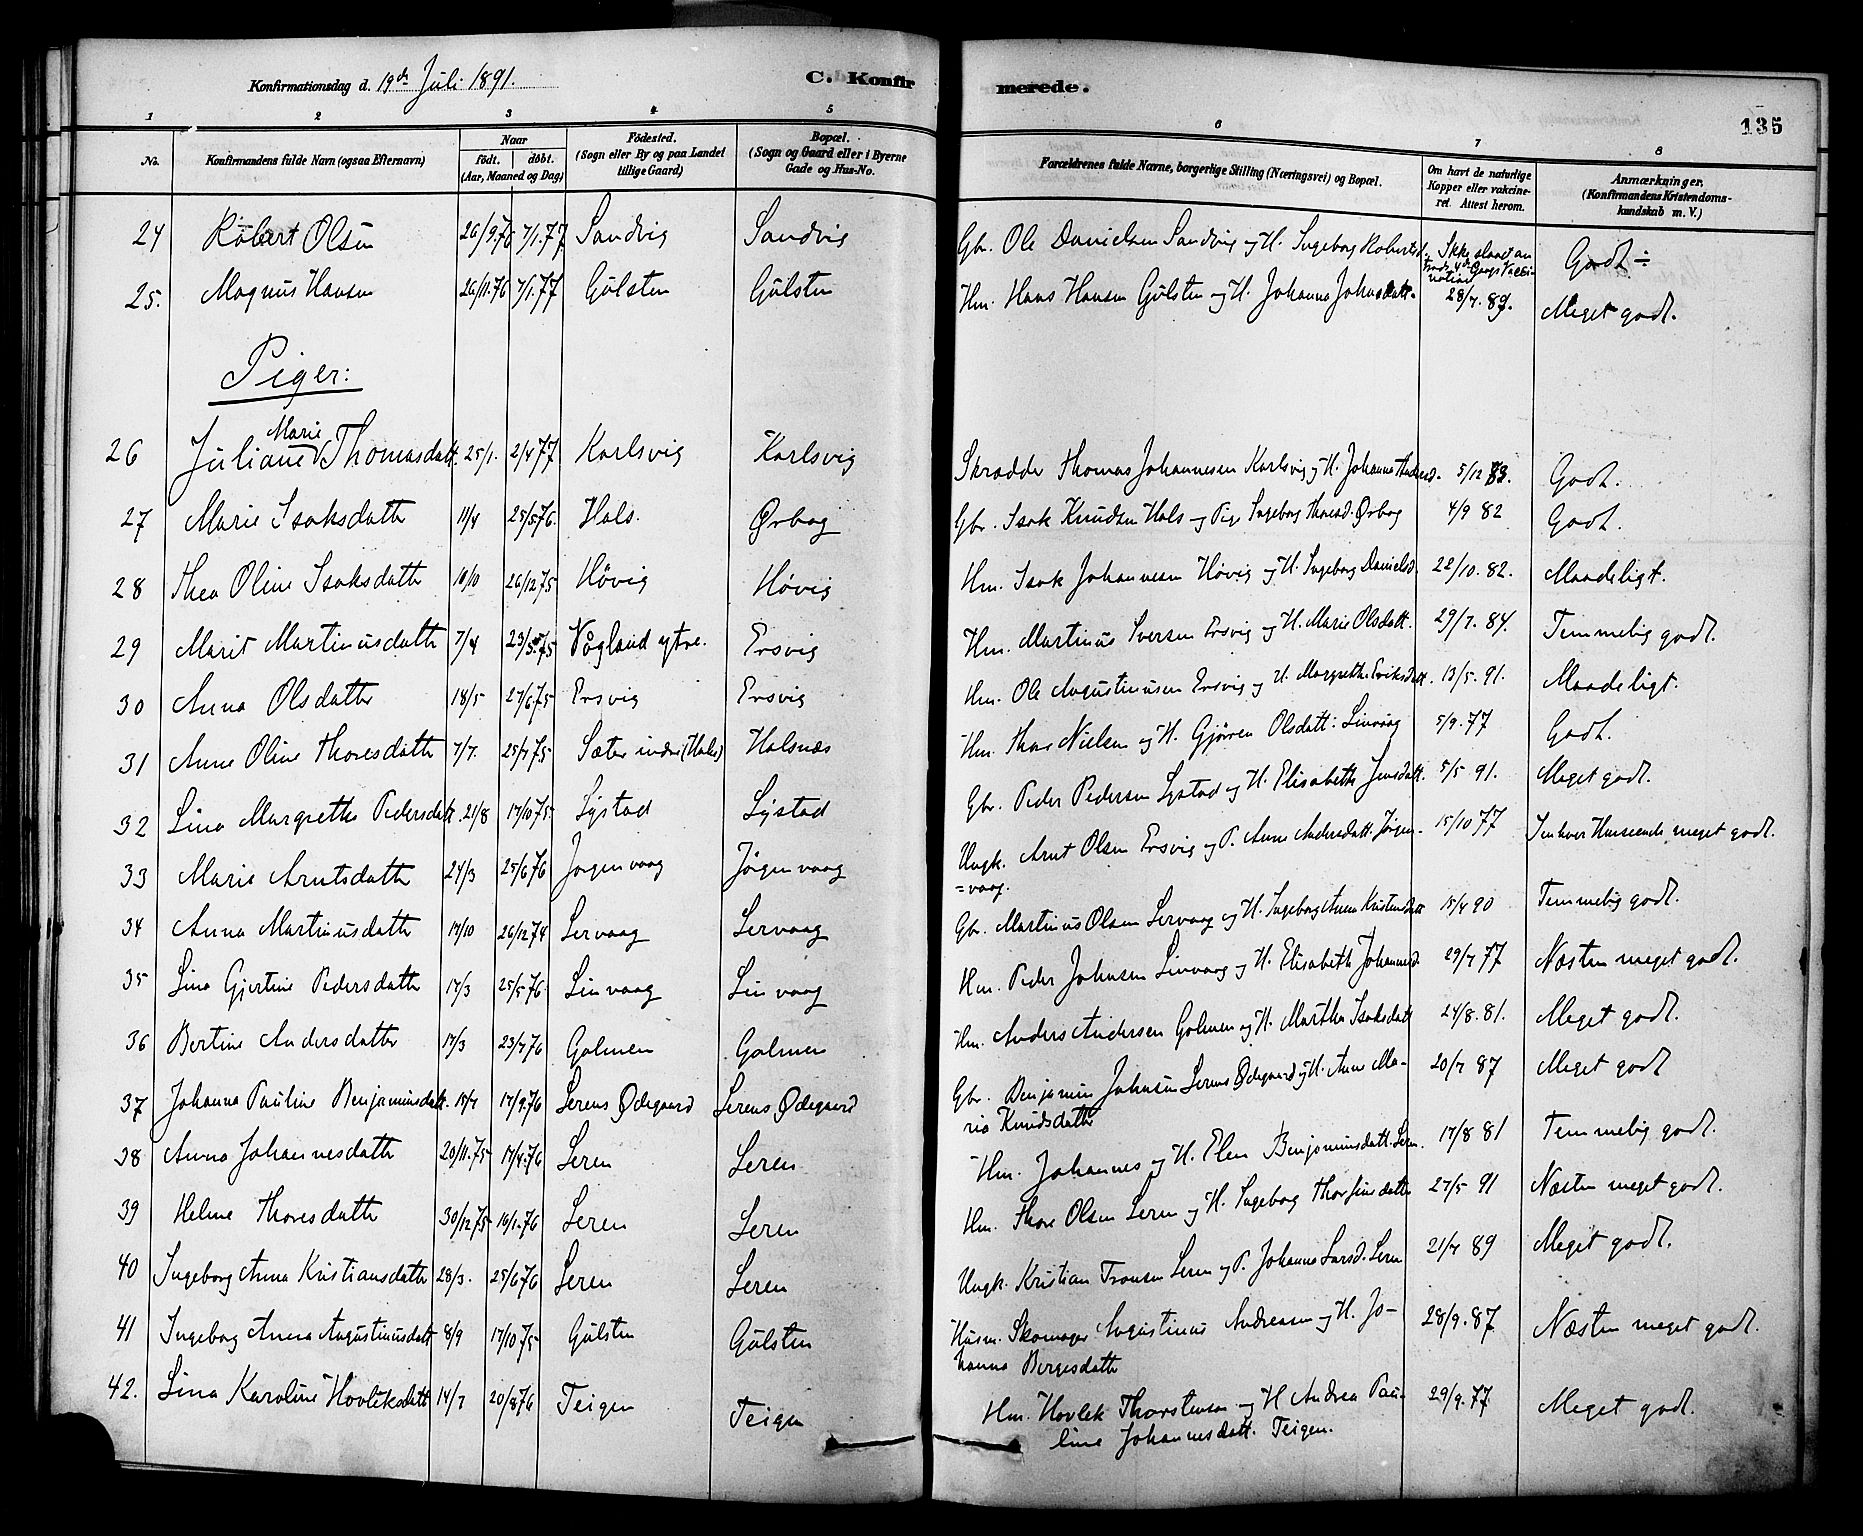 Konfirmationsdag d. 19de Juli 1891. C. Konfirmerede. 135
1 2 3 4 5 6 7 8
No. Konfirmandens fulde Navn (ogsaa Efternavn) Naar født. døbt. (Aar, Maaned og Dag) Fødested. (Sogn eller By og paa Landet tillige Gaard) Bopæl. (Sogn og Gaard eller i Byerne Gade og Hus-No. Forældrenes fulde Navne, borgerlige Stilling (Næringsvei) og Bopæl. Om havt de naturlige Kopper eller vakcineret. Attest herom. Anmærkninger. (Konfirmandens Kristendomskundskab m. V.)
24 Robert Olsen 26/9.76 7/1.77 Sandvig Sandvig Gbr. Ole Danielsen Sandvig og H. Ingeborg Robertsd. Ikke slaaet an trods 4de Gangs Vaccination Godt ÷
25. Magnus Hansen 26/11.76 7/1.77 Gülsten Gülsten Hm. Hans Hansen Gülsten og H. Johanna Johnsdatt. 28/7.89. Meget godt.
Piger:
26 Juliane Marie Thomasdatt. 25/1. 2/4 77 Karlsvig Karlsvig Skrædder Thomas Johannesen Karlsvig og H. Johanna Andersd. 5/12 83. Godt.
27 Marie Isaksdatter 11/4 25/5 76. Hals. Ørbog Gbr. Isak Knudsen Hals og Pige Ingeborg Thoresd. Ørbog 4/9 82 Godt.
28 Thea Oline Isaksdatter 10/10 26/12 75 Høvig Høvig Hm. Isak Johannesen Høvig og H. Ingeborg Danielsd. 22/10.82. Maadeligt.
29 Marit Martinusdatter 7/4 23/5 75 Vågland ytre. Ersvig Hm. Martinus Iversen Ersvig og H. Marie Olsdatt. 29/7.84. Temmelig godt.
30 Anna Olsdatter 18/5 27/6 75 Ersvig Ersvig Hm. Ole Augustinusen Ersvig og H. Margrethe Eriksdatt. 13/5.91. Maadeligt.
31 Anne Oline Thoresdatter 7/7. 25/7 75 Sæter indre (Hals) Halsnæs Hm. Thore Nielsen og H. Gjøren Olsdatt: Linvaag 5/9.77 Godt.
32 Lina Margrethe Pedersdatt. 21/8 17/10 75 Lystad Lystad Gbr. Peder Pedersen Lystad og H. Elisabeth Jensdatt. 5/5 91. Meget godt.
33 Marie Arntsdatter 24/3 25/6 76 Jørgenvaag Jørgenvaag Ungk. Arnt Olsen Ersvig og P. Anne Andersdatt. Jørgen=
=vaag. 15/10 77 I enhver Henseende meget godt.
34 Anna Martinusdatter 17/10 26/12 74 Lervaag Lervaag Gbr. Martinus Olsen Lervaag og H. Ingeborg Anna Kristensdatt 15/4 90 Temmelig godt.
35 Lina Gjertine Pedersdatter 17/3 25/5 76 Linvaag Linvaag Hm. Peder Johnsen Linvaag og H. Elisabeth Johannesd. 29/7 77 Næsten meget godt.
36 Bertine Andersdatter 17/3 23/4 76 Golmen Golmen Hm. Anders Andersen Golmen og H. Martha Isaksdatt 24/8.81. Meget godt.
37 Johanna Pauline Benjaminsdatt. 15/7 17/9.76 Lerens Ødegaard Lerens Ødegaard Gbr. Benjamin Johnsen Lerens Ødegaard og H. Anne Ma-
ria Knudsdatter 20/7 87 Meget godt
38 Anna Johannesdatter 20/11.75 17/4.76 Leren Leren Hm. Johannes og H. Elen Benjaminsdatt. Leren. 17/8 81 Temmelig godt.
39 Heline Thoresdatter 30/12 75 16/1.76 Leren Leren Hm. Thore Olsen Leren og H. Ingeborg Thorfinsdatter 27/5 91 Næsten meget godt.
40 Ingeborg Anna Kristiansdatter 28/3. 25/6 76 Leren Leren Ungk. Kristian Tronsen Leren og P. Johanna Larsd. Leren 21/7 89 Meget godt.
41 Ingeborg Anna Augustinusdatt 8/9 17/10 75 Gülsten Gülsten Husm. Skomager Augustinus Andreasen og H. Jo-
hanna Børgesdatter 28/9.87 Næsten meget godt.
42. Lina Karoline Hovleksdatt 14/7 20/8 76 Teigen Teigen Hm. Hovlek Thorstensen og H Andrea Pau-
line Johannesdatt. Teigen. 29/9.77 Meget godt.